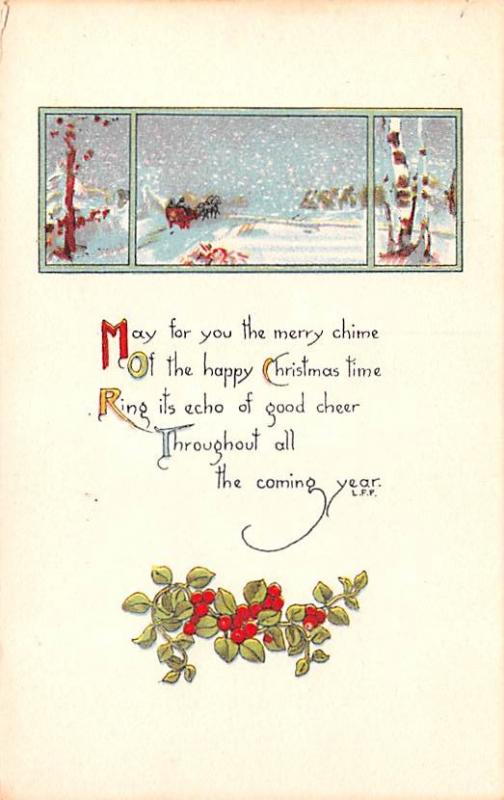 May for you the merry chime
Of the happy Christmas time
Ring its echo of good cheer
Throughout all
the coming year.
L.F.P.